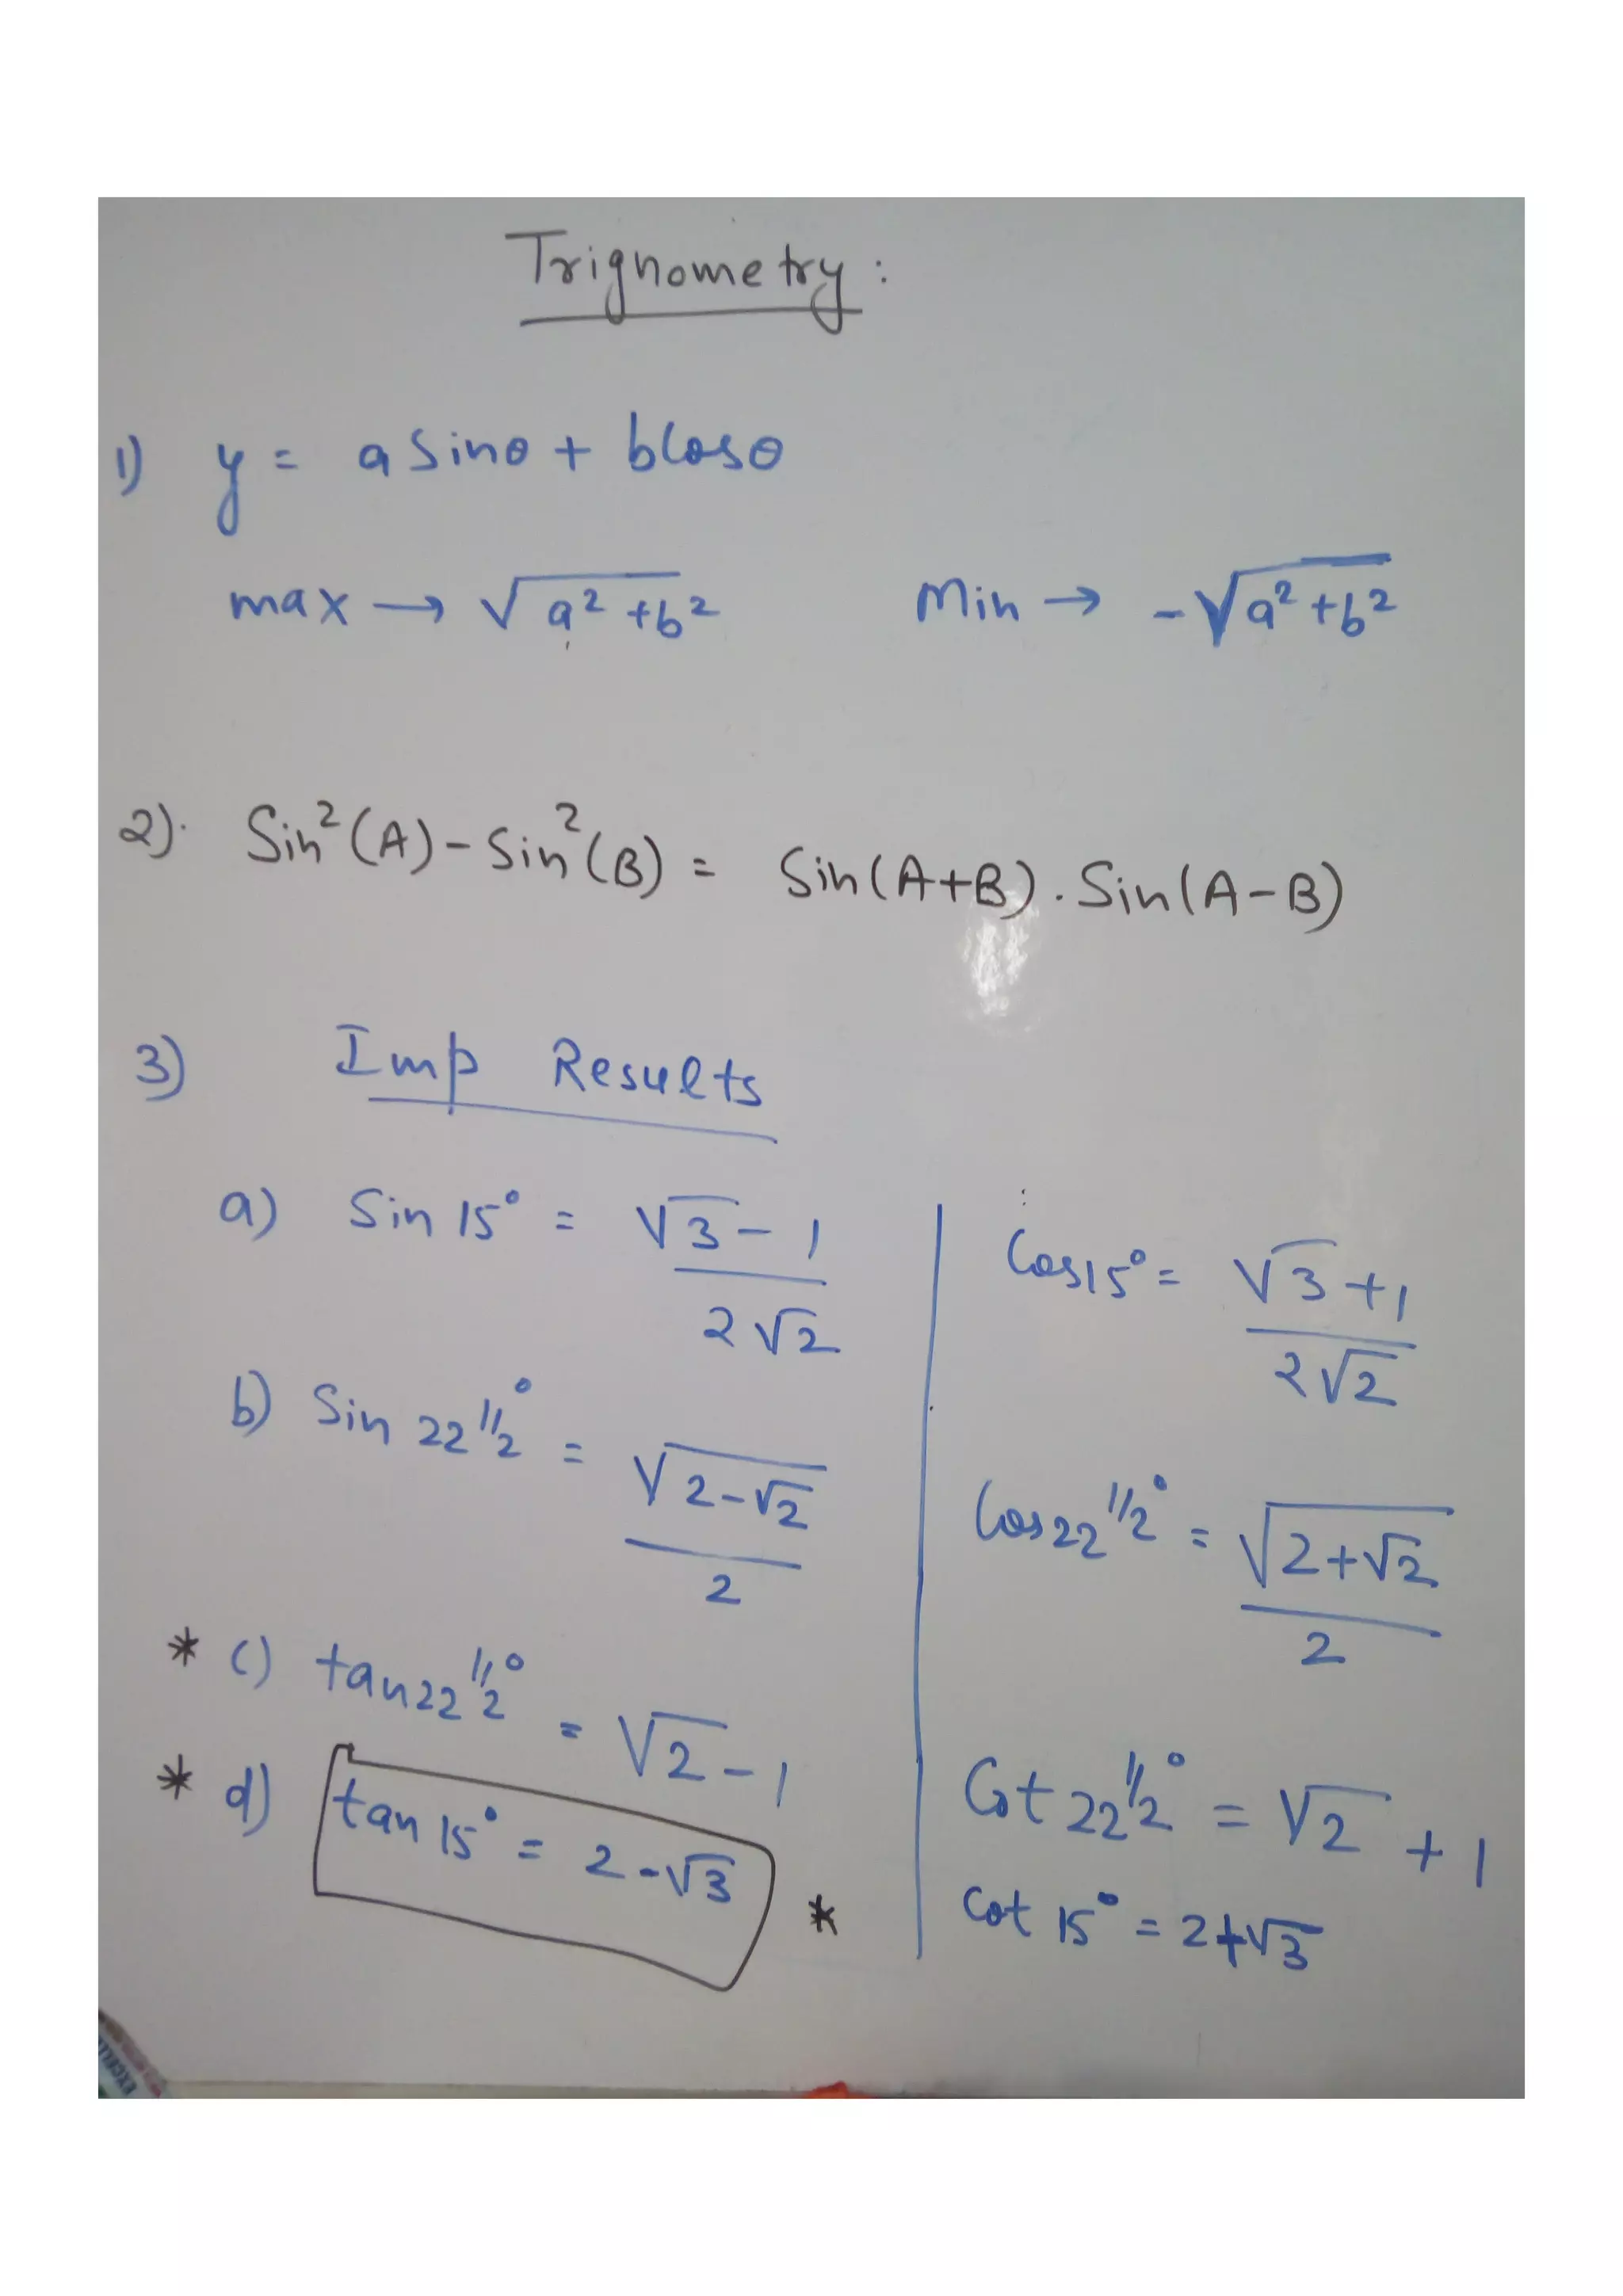 Trignometry:
1) y = a Sinθ + bCosθ
max → √a² + b² Min → -√a² + b²
2). Sin²(A) - Sin²(B) = Sin(A+B) . Sin(A-B)
3) Imp Results
a) Sin 15° = √3 - 1 / 2√2
Cos15° = √3 + 1 / 2√2
b) Sin 22 1/2° = √2-√2 / 2
Cos22 1/2° = √2+√2 / 2
* c) tan22 1/2° = √2 - 1
Cot 22 1/2° = √2 + 1
* d) tan 15° = 2 - √3 *
Cot 15° = 2+√3